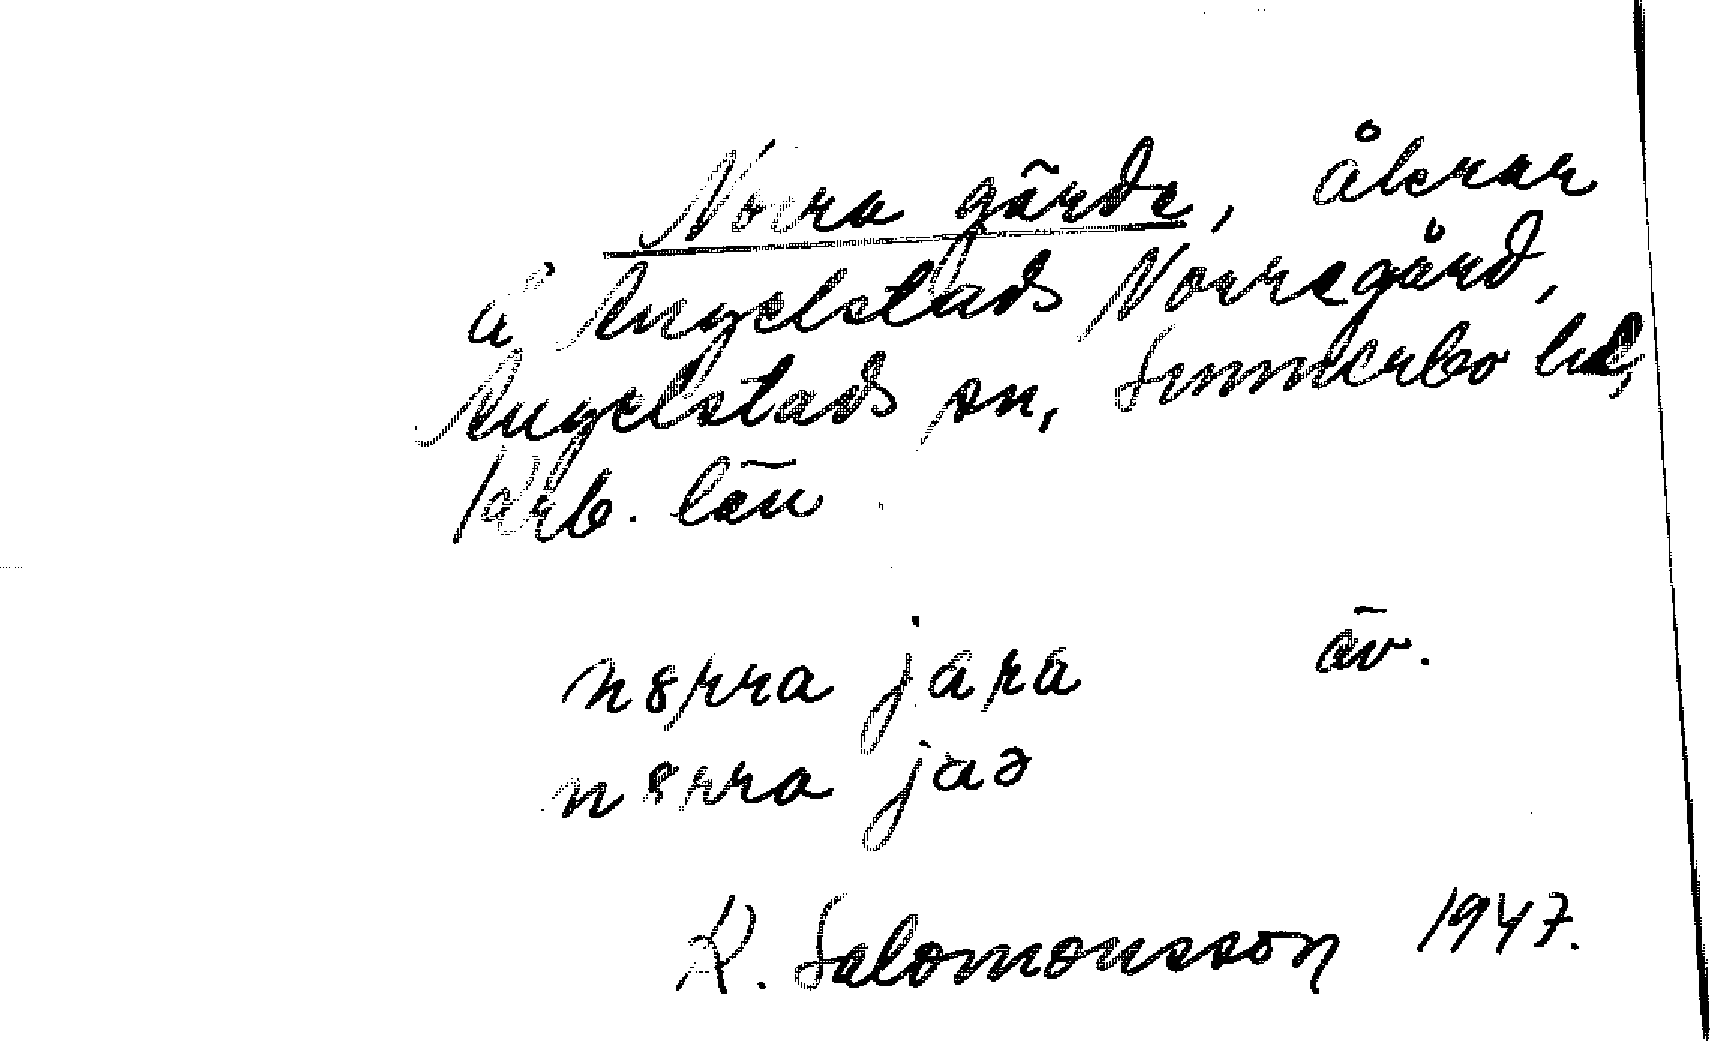 Norra gärde, åkrar
å Angelstads Norregård,
Angelstads sn, Sunnerbo hd,
Krb. län
n8rra jara äv.
n8rra jaə
K. Salomonsson 1947.